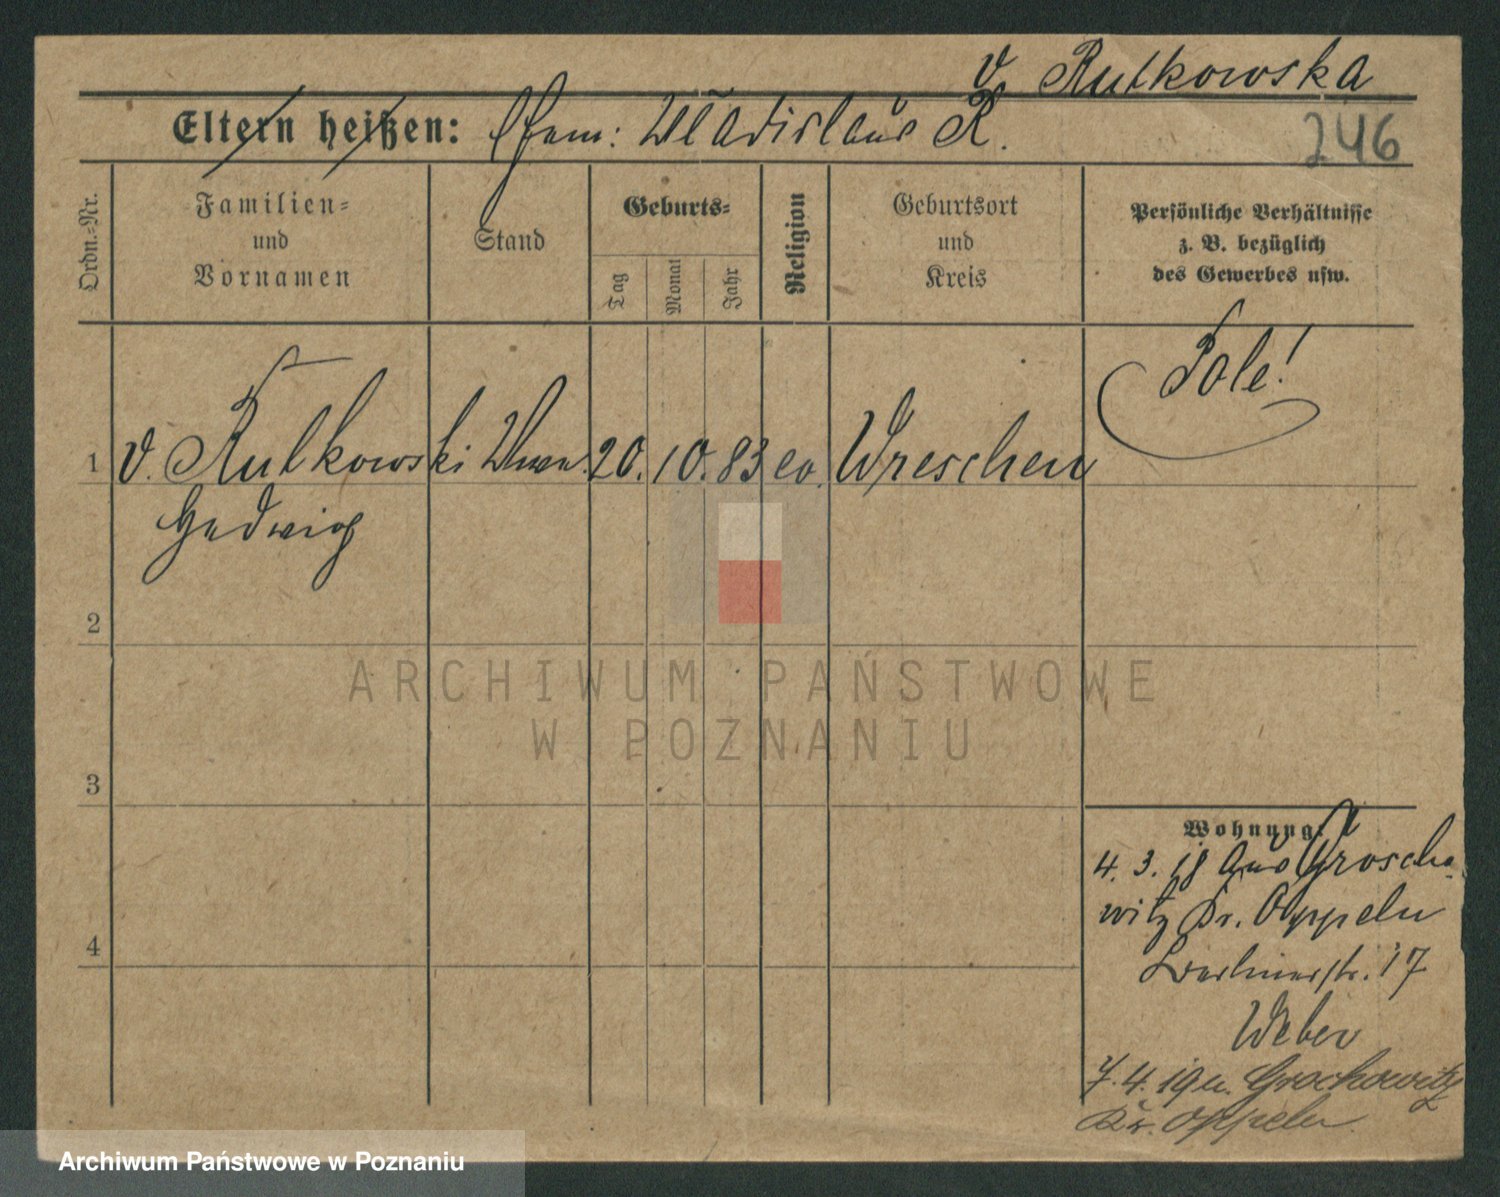 v. Rutkowska
Eltern heißen: Ehem: Wladislaus R.
246
Ordn.-Nr.
Familien-
und
Vornamen
Stand
Geburts-
Tag
Monat
Jahr
Religion
Geburtsort
und
Kreis
Persönliche Verhältnisse
z. B. bezüglich
des Gewerbes usw.
Pole!
1 v. Rutkowski Wwe. 20. 10. 83 ev. Wreschen
Hedwig
2
ARCHIWUM PAŃSTWOWE
W POZNANIU
3
Wohnung:
4. 3. 18 aus Groscho-
witz Kr. Oppeln
4
Berlinerstr. 17
Weber
7. 4. 19 n. Grochowitz
Kr. Oppeln.
Archiwum Państwowe w Poznaniu